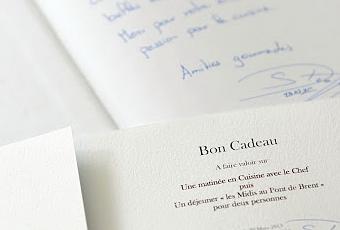 Merci pour votre
passion pour la cuisine.
Amitiés gourmandes
Bon Cadeau
A faire valoir sur
Une matinée en Cuisine avec le Chef
puis
Un déjeuner « les Midis au Pont de Brent »
pour deux personnes
Mars 2013